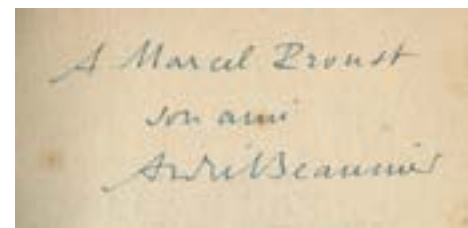 A Marcel Proust
son ami
André Beaunier